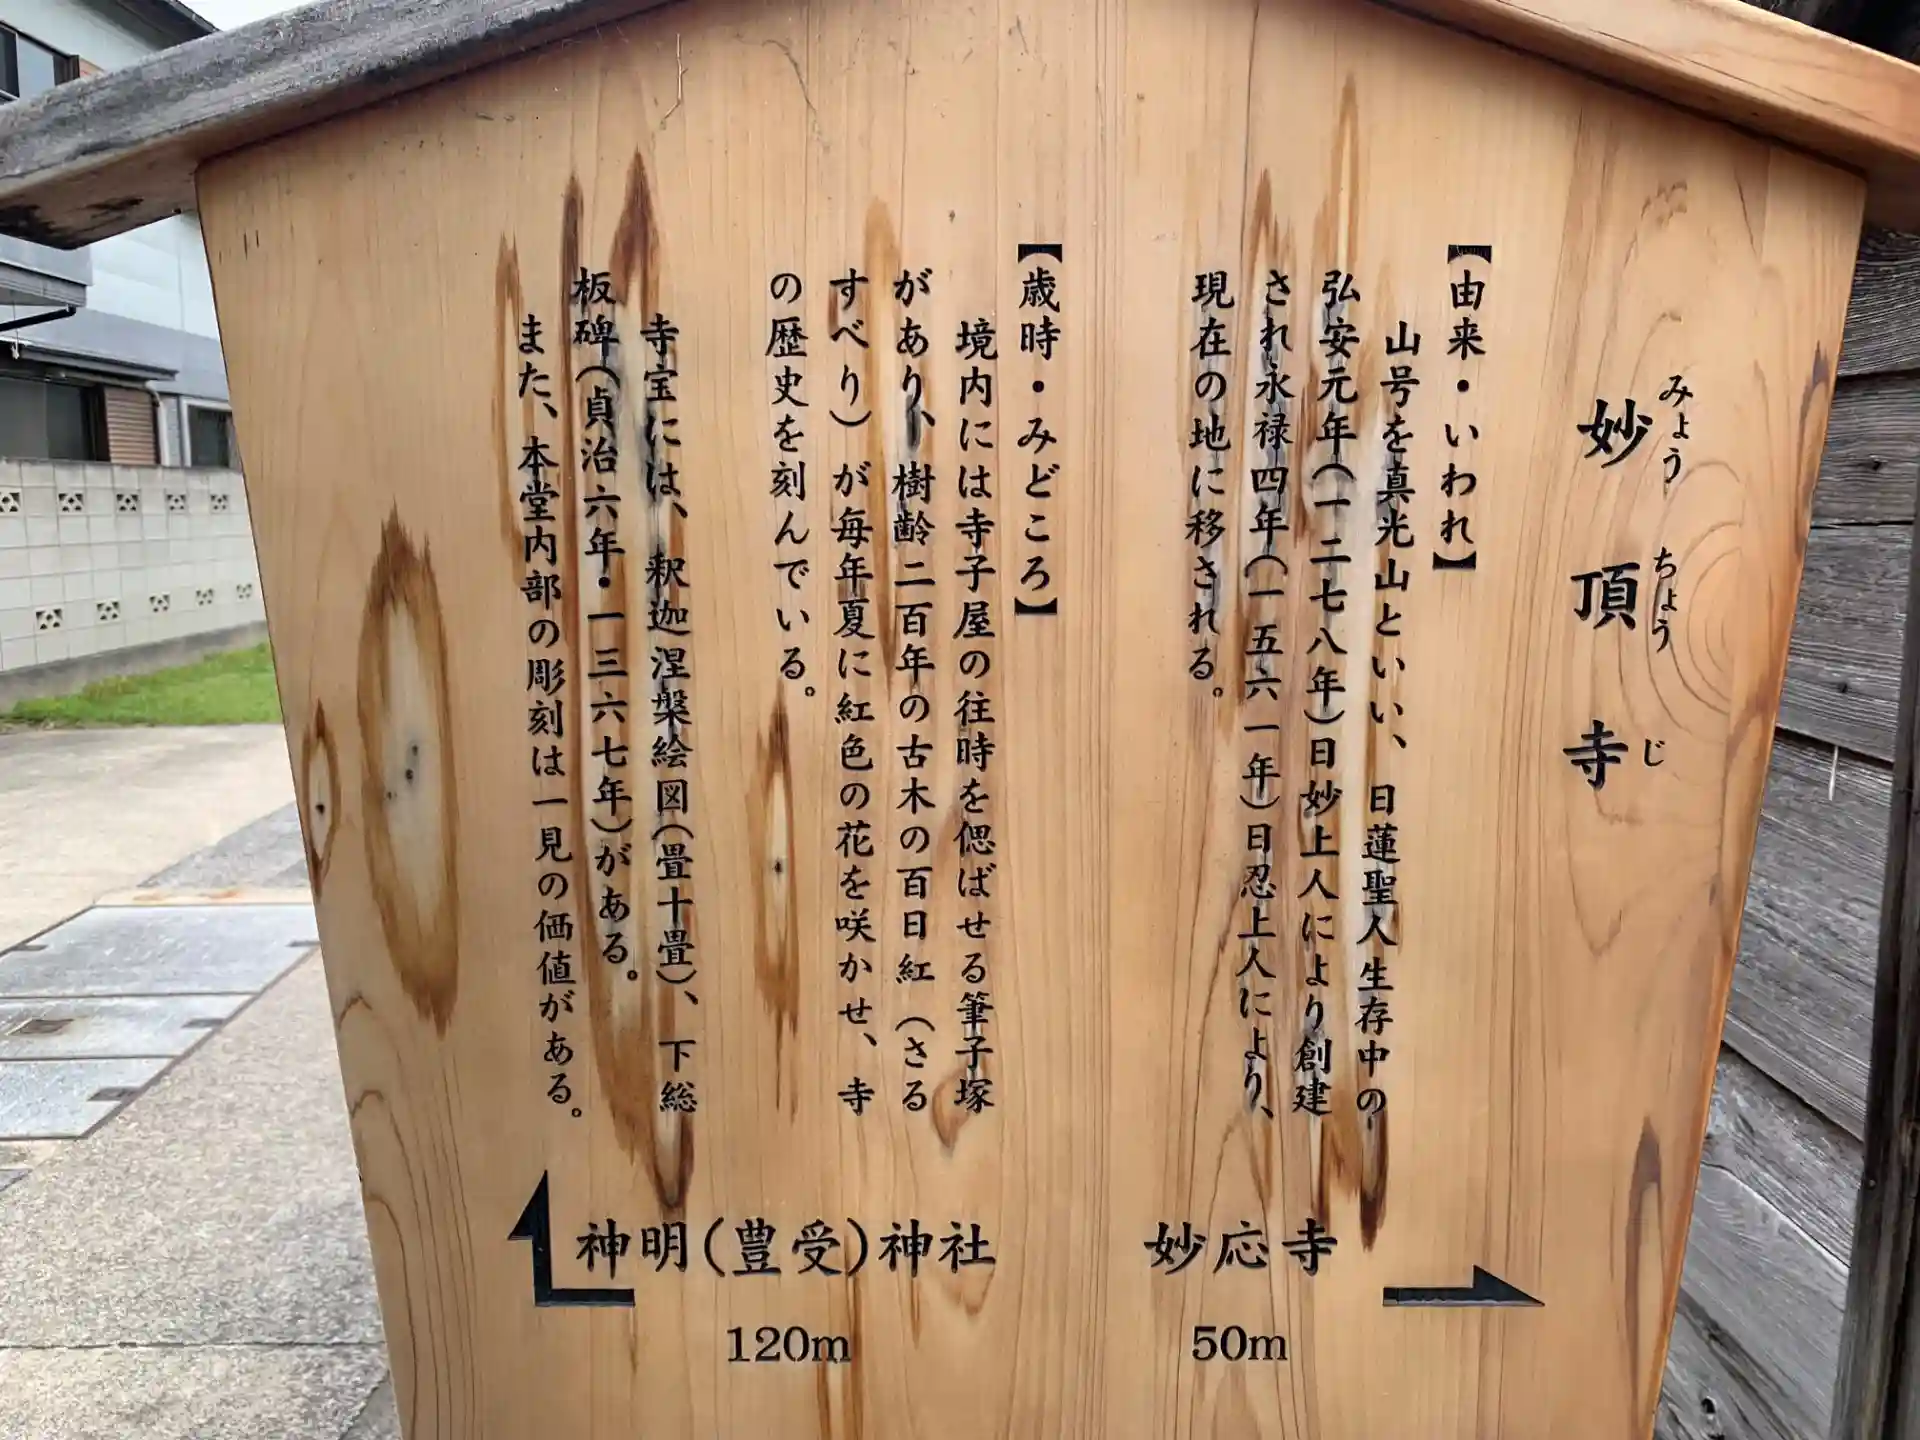 妙頂寺
みょうちょうじ
【由来・いわれ】
山号を真光山といい、日蓮聖人生存中の
弘安元年(一二七八年)日妙上人により創建
され永禄四年(一五六一年)日忍上人により、
現在の地に移される。
【歳時・みどころ】
境内には寺子屋の往時を偲ばせる筆子塚
があり、樹齢二百年の古木の百日紅(さる
すべり)が毎年夏に紅色の花を咲かせ、寺
の歴史を刻んでいる。
寺宝には、釈迦涅槃絵図(畳十畳)、下総
板碑(貞治六年・一三六七年)がある。
また、本堂内部の彫刻は一見の価値がある。
神明(豊受)神社
120m
妙応寺
50m